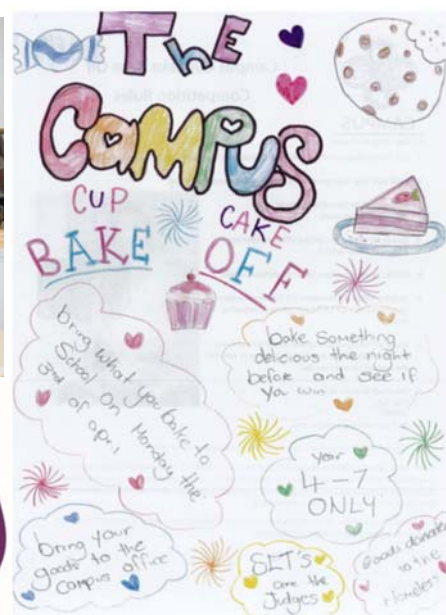 The
CAMPUS
CUP CAKE
BAKE OFF
bring what you bake to
School on Monday the
2nd of april
bake Something
delicious the night
before and see if
ya win
year
4-7
ONLY
bring your
goods to the
campus office
SLT's
are the
Judges
Goods
to the